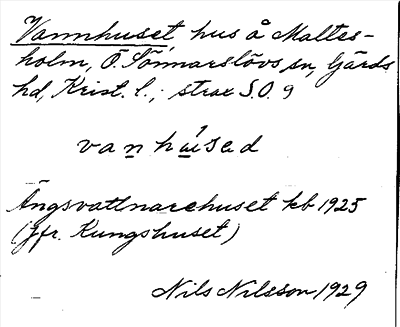 Vannhuset hus å Maltes-
holm, Ö. Sönnarslövs sn, Gärds
hd, Krist. l.; strax S.O. 9
vanhúsed
Ängsvattnarehuset kb 1925
(jfr. Kungshuset)
Nils Nilsson 1929